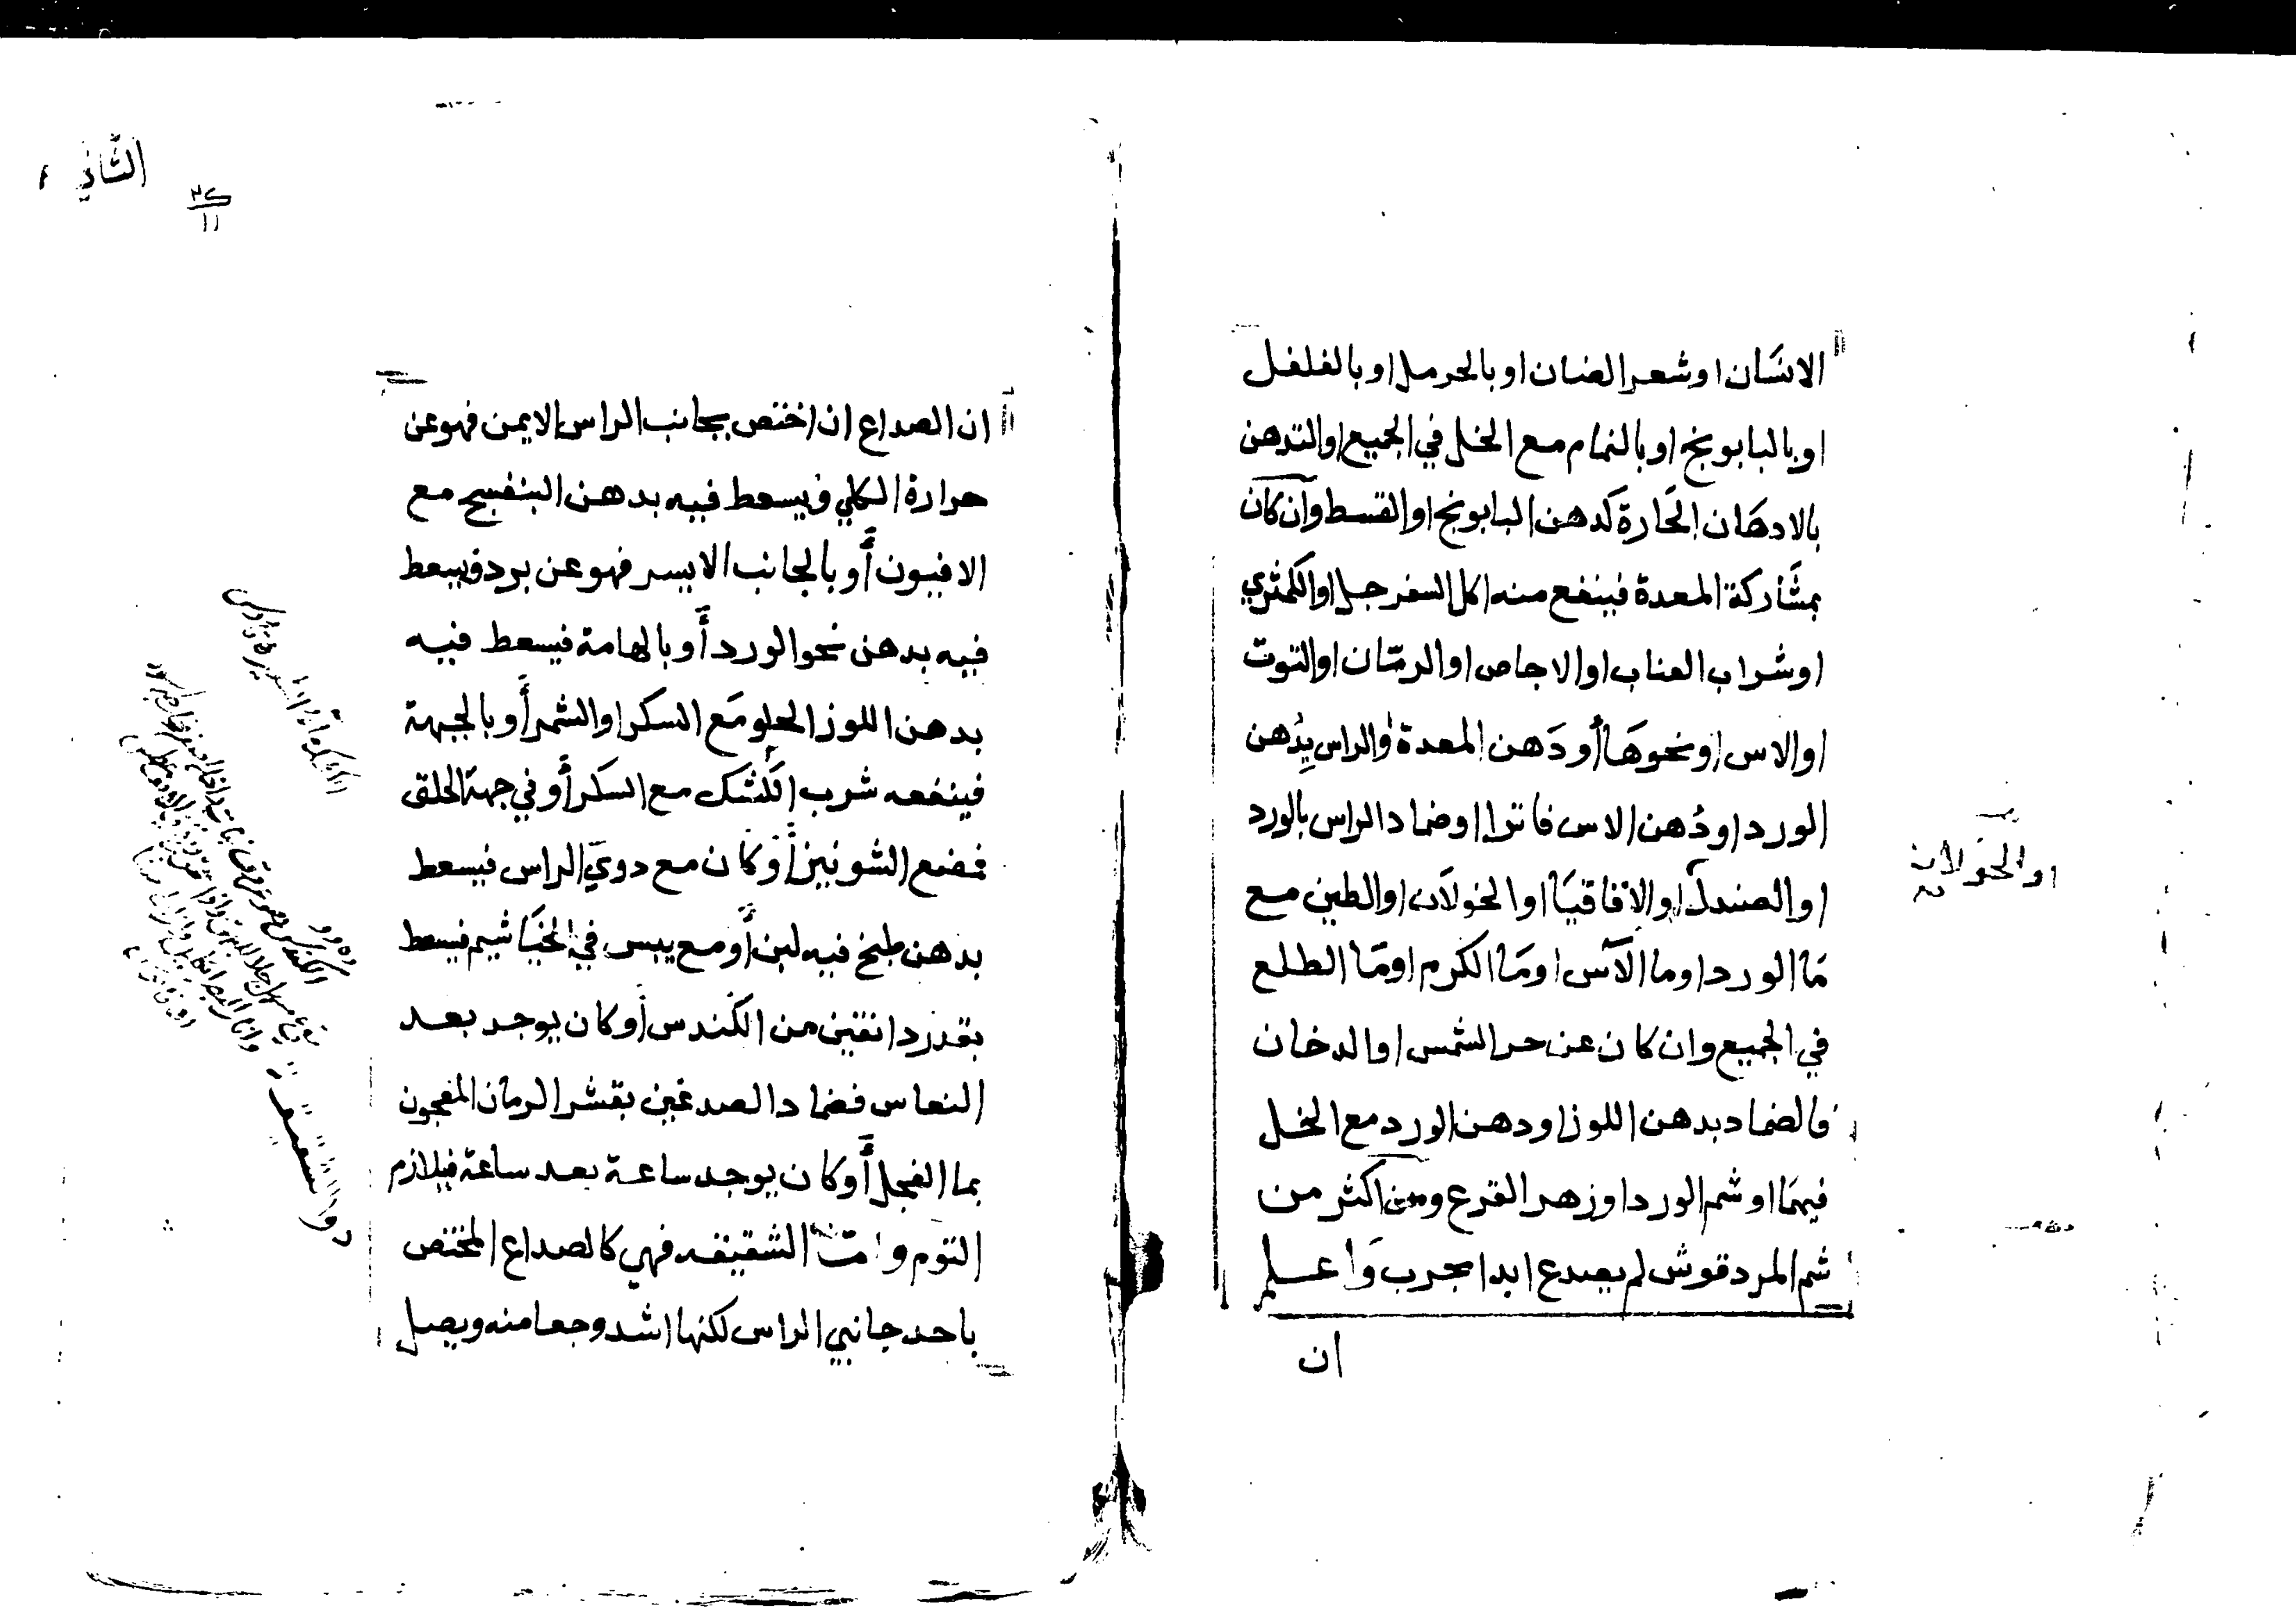 الانسَان اوشعر الضان اوبالحرمل اوبالفلفل
اوبالبابونج اوبالنمام مع الخل في الجميع اوالتدهن
بالادهَان الحَارة كَدهن البابونج اوالقسط وان كان
بمشَاركة المعدة فينفع منه اكل السفرجل اوالكمثري
اوشراب العناب اوالاجاص اوالرمّان اوالتوت
اوالاس اونحوهَا أودَهن المعدة والراس بِدُهن
الورد اودُهن الاس فاترا اوضماد الراس بالورد
اوالصندل اوالاقاقيَا اوالخولَان اوالطين مع
مَا الورد اوما الآس اومَا الكرم اومَا الطلع
في الجميع وان كان عن حر الشمس اوالدخان
فالضماد بدهن اللوز اودهن الورد مع الخل
فيهمَا اوشم الورد اوزهر القرع ومن اكثر من
شم المردقوش لم يصدع ابدا مجرب وَاعلم
ان
اوالخولان
الثاني
١١
ان الصداع ان اختص بجانب الراس الايمن فهو عن
حرارة الكلي ويسعط فيه بدهن البنفسج مع
الافيون أوبالجانب الايسر فهو عن برد ويسعط
فيه بدهن نحو الورد أوبالهامة فيسعط فيه
بدهن اللوز الحلو مَع السكر اوالشمر أوبالجبهة
فينفعه شرب الكَشك مع السكر أوفي جهة الحلق
فمضع الشونيز أوكان مع دويّ الراس فيسعط
بدهن طبخ فيه لبن أومع يبس في الخيَاشيم فيسعط
بقدر دانقين من الكُندس أوكان يوجد بعد
النعاس فضماد الصدغين بقشر الرمان المعجون
بما الفجل أوكان يوجد ساعة بعد ساعة فيلازم
النوم وامّا الشقيقه فهي كالصداع المختص
باحد جانبي الراس لكنها اشد وجعا منه ويصل
دوا الشقيقه